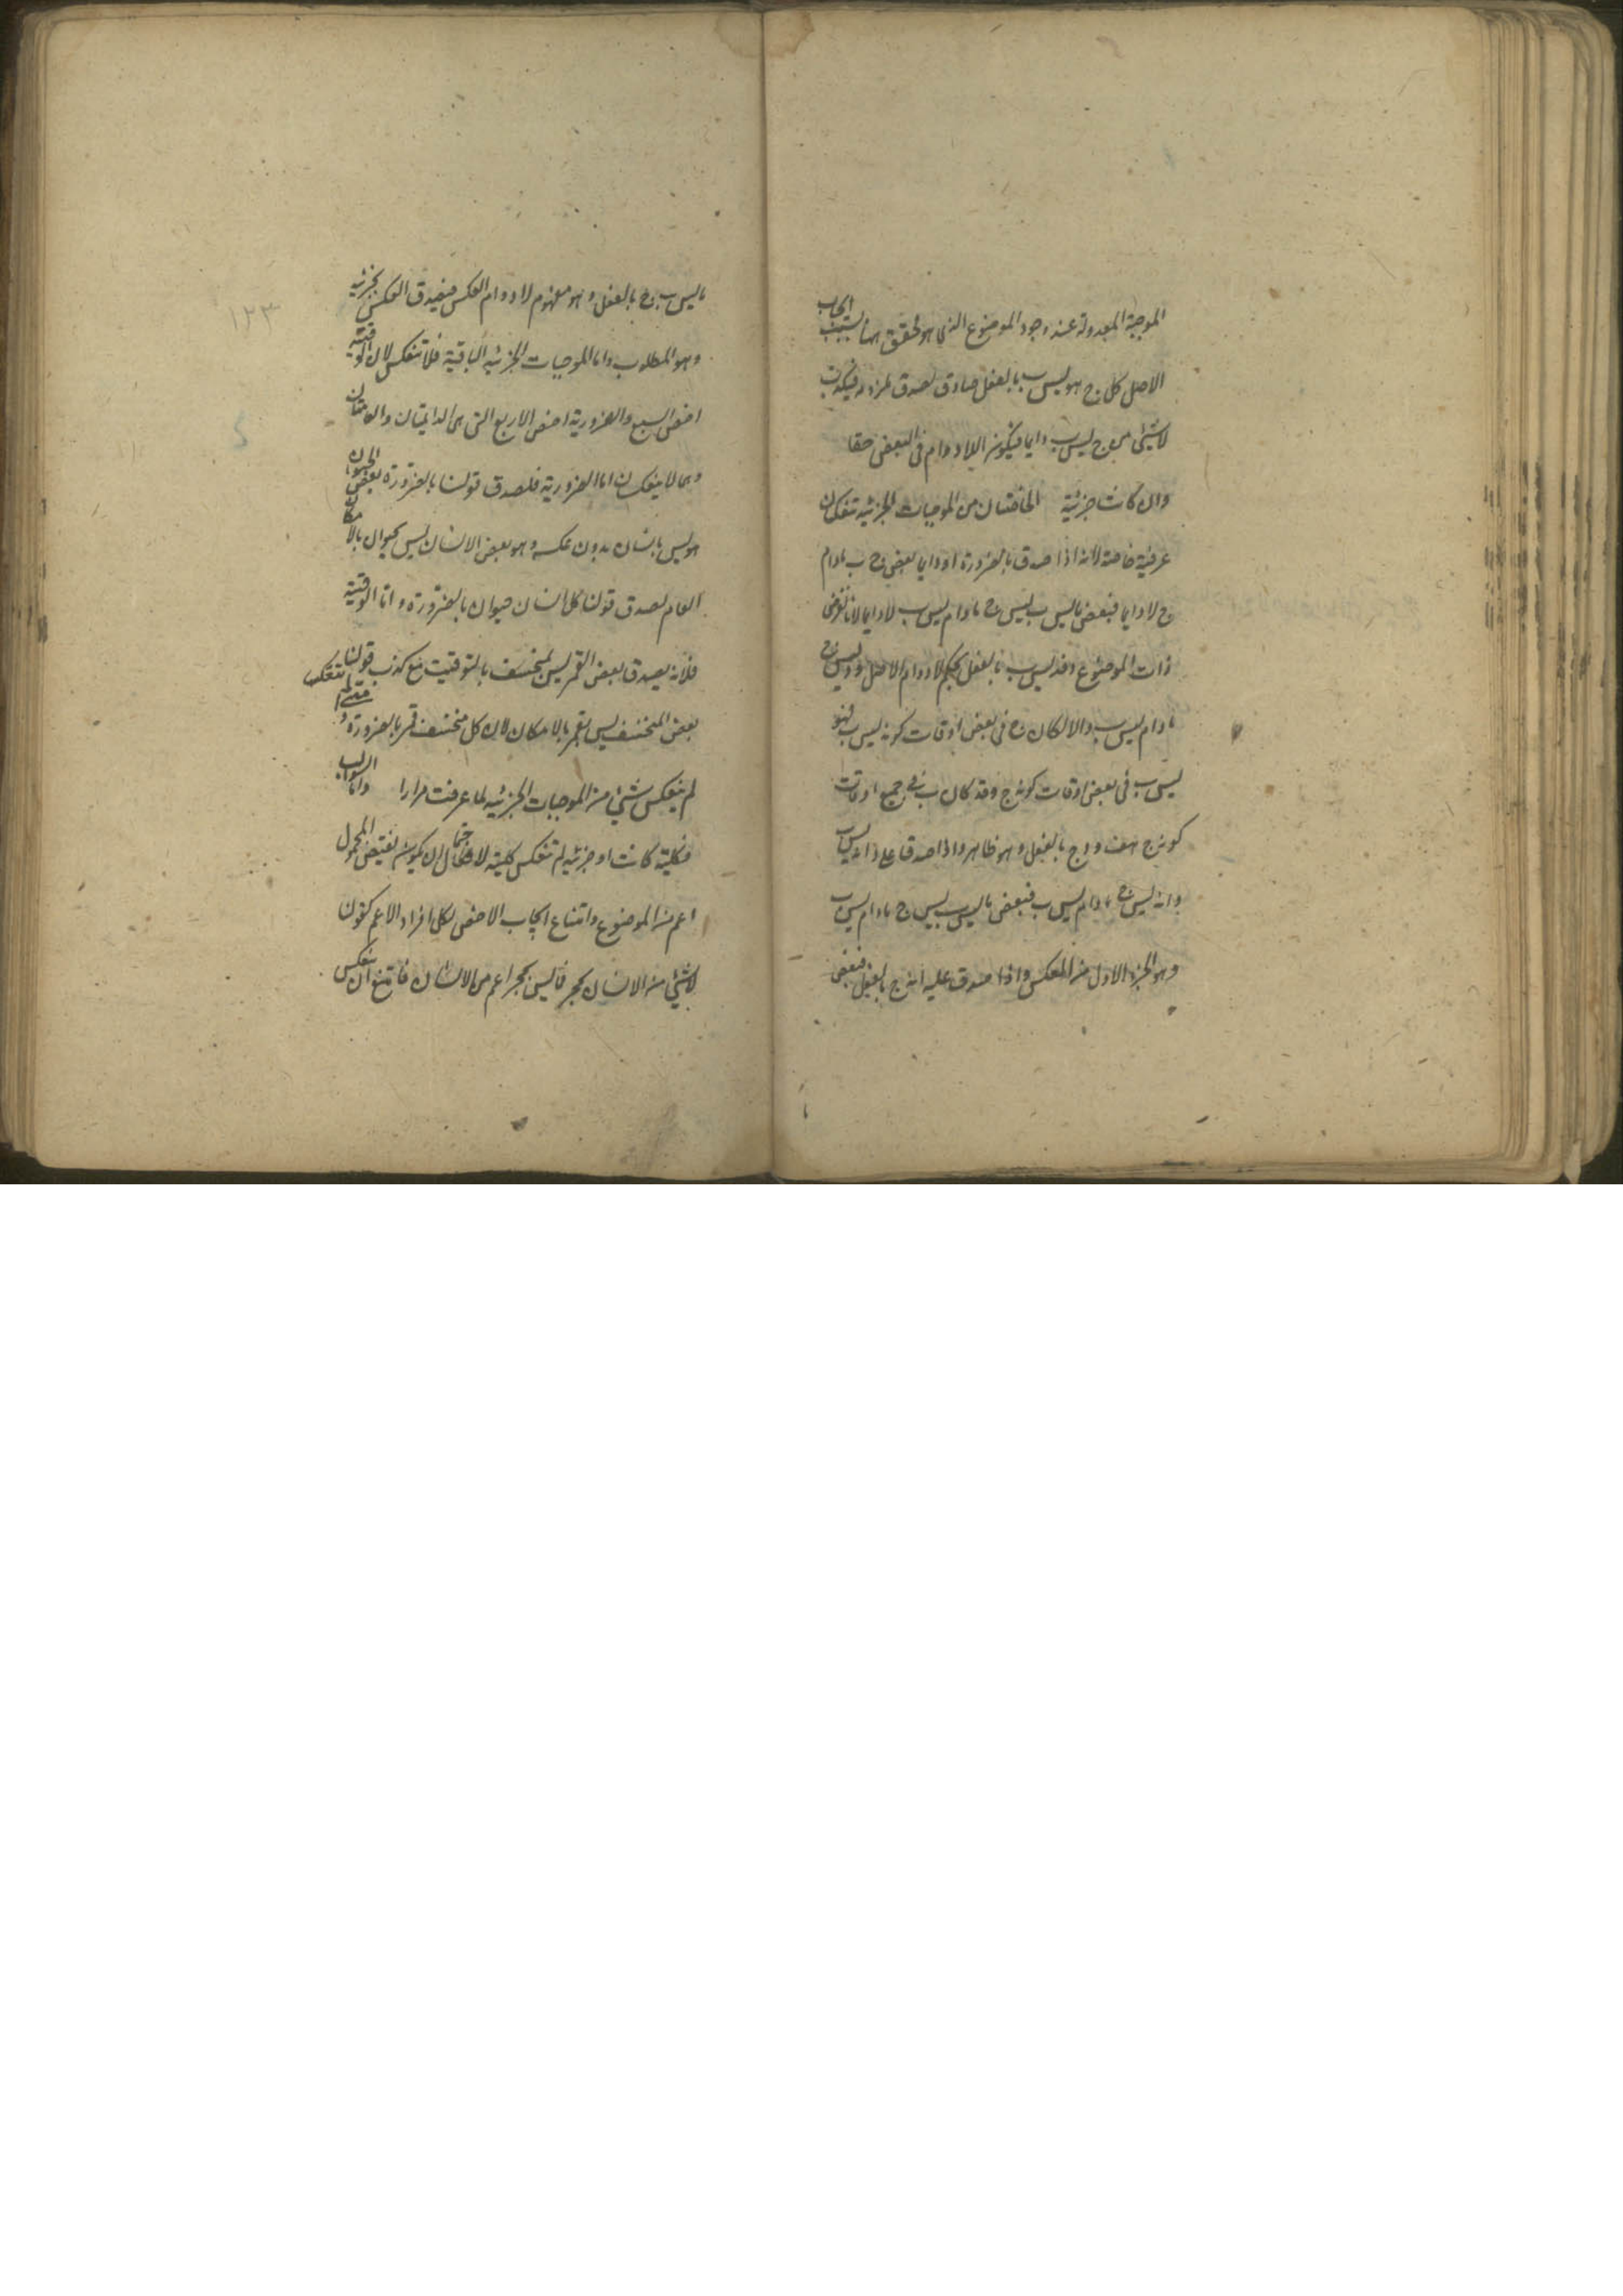 الموجبة المعدولة عند وجود الموضوع الذى هو محقق ههنا بسبب ايجاب
الاصل كل ج هو ليس ب بالفعل صادق لصدق لازمه فيكذب
لا شيئ من ج ليس ب دايما فيكون اللادوام فى البعض حقا
وان كانت جزئية الخاصتان من الموجبات الجزئية تنعكسان
عرفية خاصة لانه اذا صدق بالضرورة او دايما بعض ج ب مادام
ج لا دايما فبعض ماليس ب ليس ج مادام ليس ب لا دايما لانا نفرض
ذات الموضوع د فد ليس ب بالفعل بحكم لادوام الاصل ود ليس ج
مادام ليس ب والا لكان ج فى بعض اوقات كونه ليس ب فهو
ليس ب فى بعض اوقات كونه ج وقد كان ب فى جميع اوقات
كونه ج هف ود ج بالفعل وهو ظاهر واذا صدق على د انه ليس ب
وانه ليس ج مادام ليس ب فبعض ماليس ب ليس ج مادام ليس ب
وهو الجزء الاول من العكس واذا صدق عليه انه ج بالفعل فبعض
ماليس ب ج بالفعل وهو مفهوم لادوام العكس فيصدق العكس بجزئيه
وهو المطلوب واما الموجبات الجزئيه الباقية فلا تنعكس لان الوقتية
اخص السبع والضرورية اخص الاربع التى هى الدايمتان والعامتان
وهما لا ينعكسان اما الضرورية فلصدق قولنا بالضرورة بعض الحيوان
هو ليس بانسان بدون عكسه وهو بعض الانسان ليس بحيوان بالامكان
العام لصدق قولنا كل انسان حيوان بالضرورة واما الوقتية
فلانه يصدق بعض القمر ليس بمنخسف بالتوقيت مع كذب قولنا
بعض المنخسف ليس بقمر بالامكان لان كل منخسف قمر بالضرورة و متى لم تنعكسا
لم ينعكس شيئ من الموجبات الجزئيه لما عرفت مرارا واما السوالب
فكلية كانت او جزئيه لم تنعكس كلية لاحتمال ان يكون نقيض المحمول
اعم من الموضوع وامتناع ايجاب الاخص لكل افراد الاعم كقولنا
لا شيئ من الانسان بحجر فماليس بحجر اعم من الانسان فامتنع ان ينعكس
١٢٣